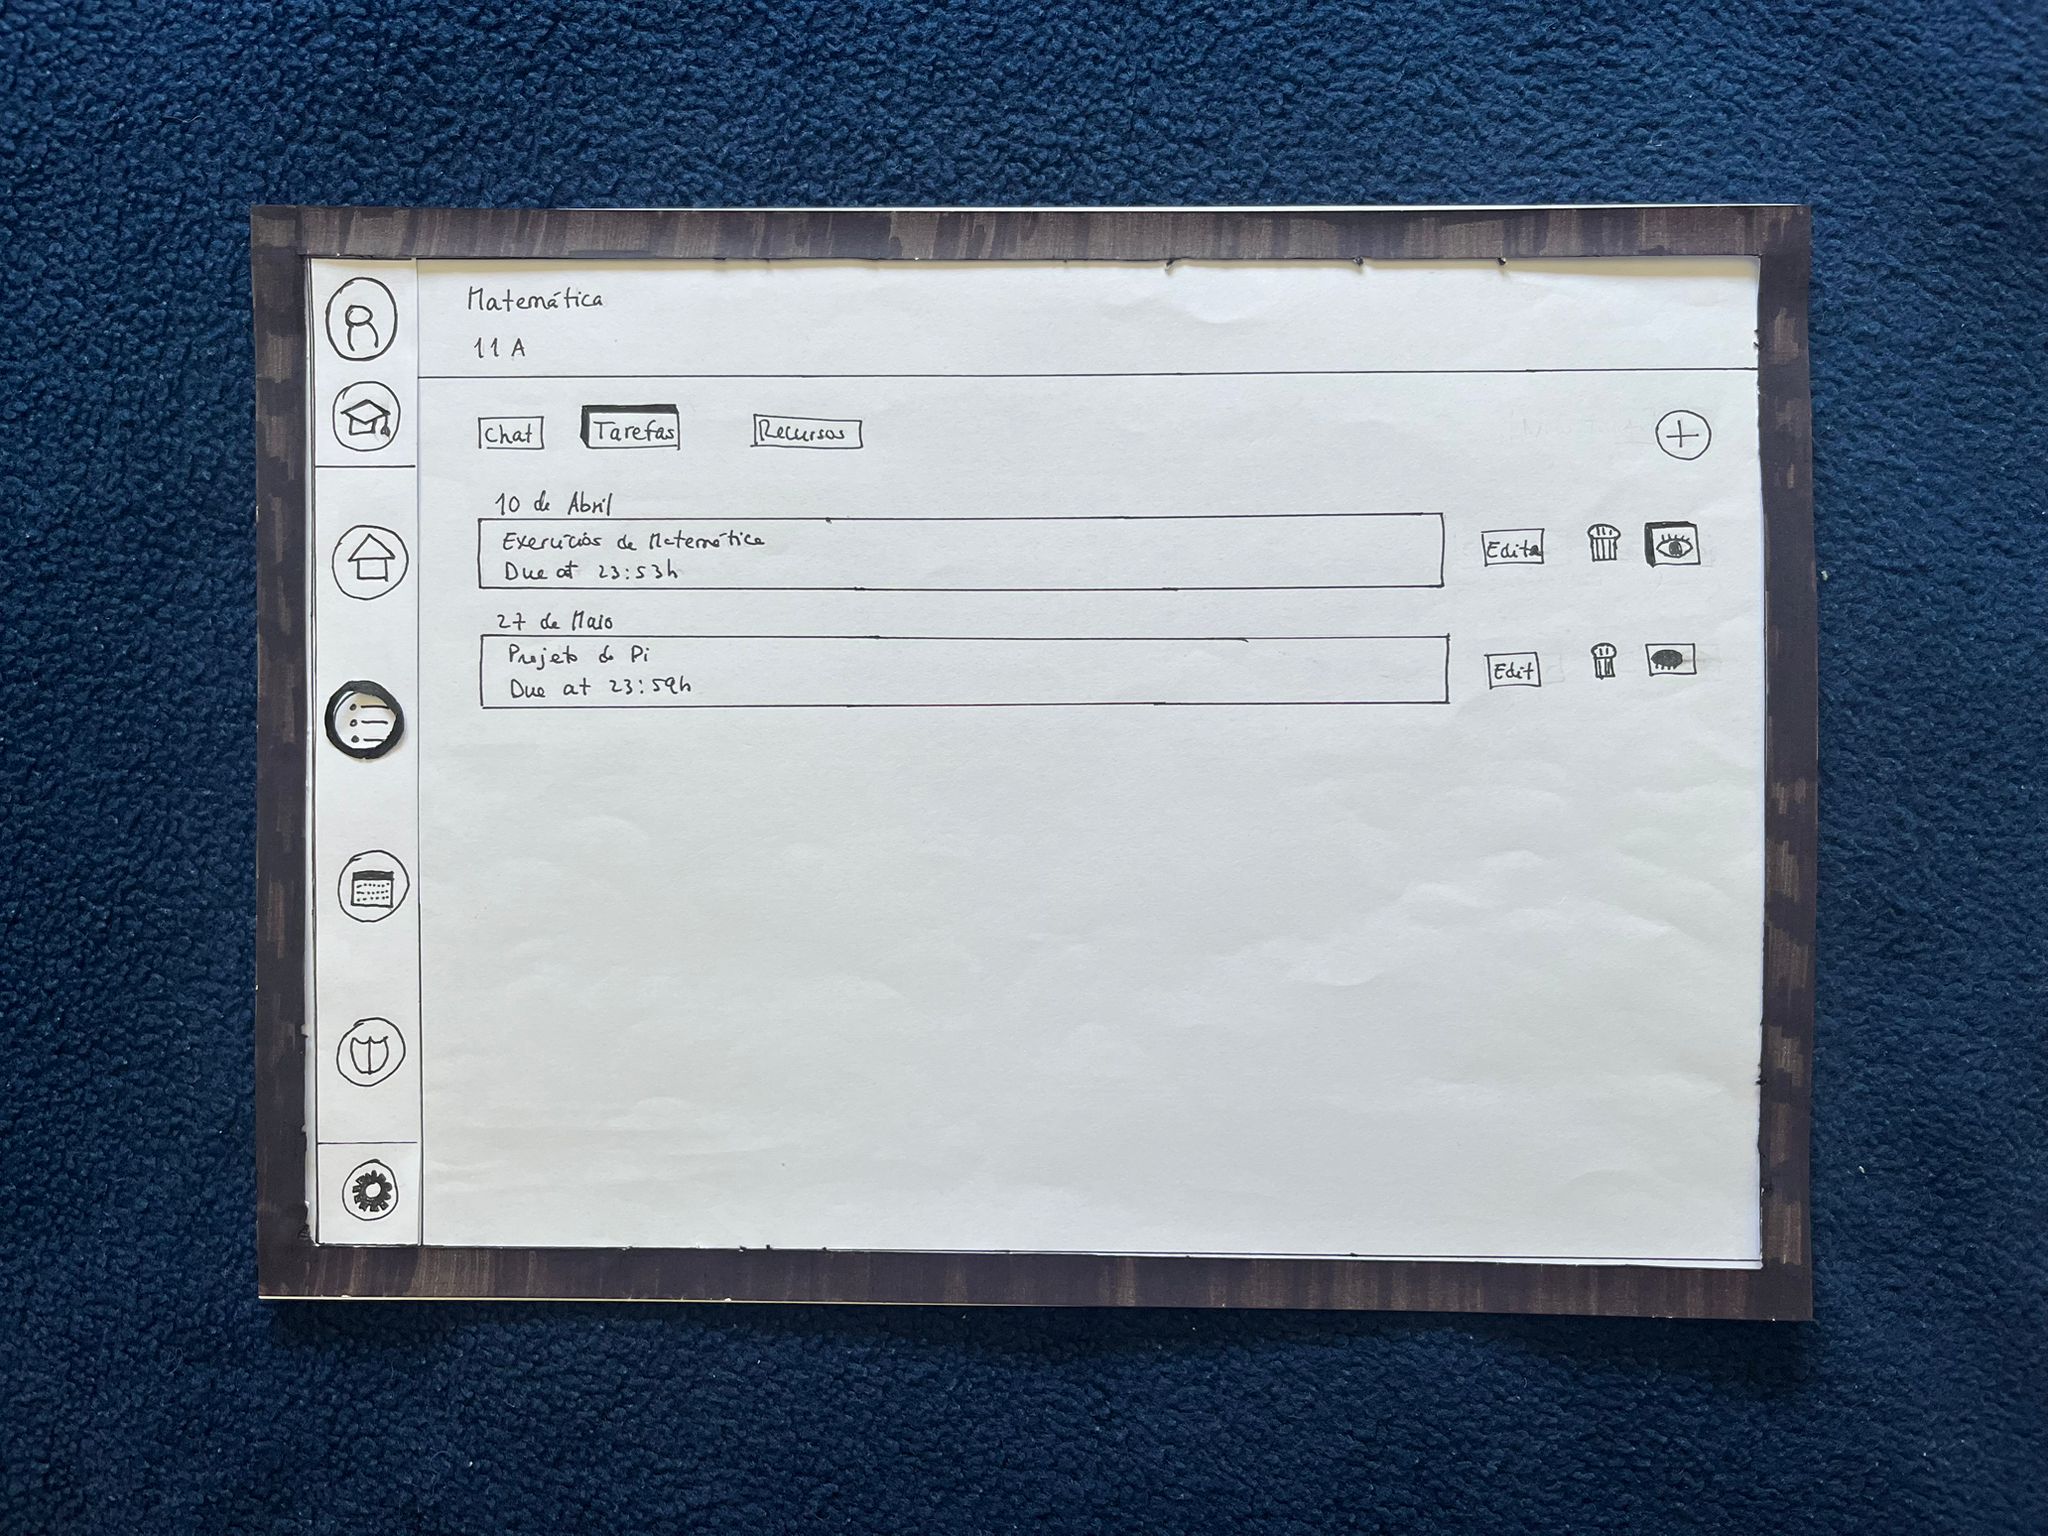 Matemática
11 A
Chat Tarefas Recursos
10 de Abril
Exercícios de Matemática
Due at 23:53h
Edita
27 de Maio
Projeto do Pi
Due at 23:59h
Edit